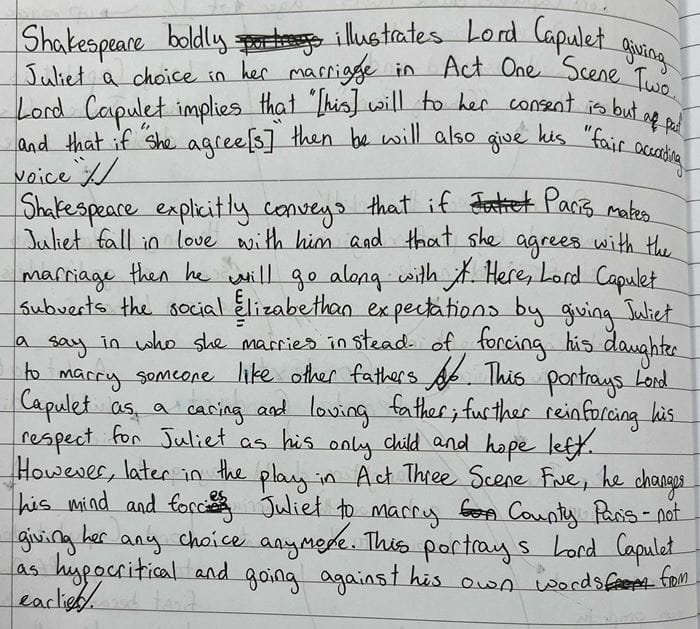 Shakespeare boldly illustrates Lord Capulet giving
Juliet a choice in her marriage in Act One Scene Two.
Lord Capulet implies that "[his] will to her consent is but a part
and that if "she agree[s]" then he will also give his "fair according
voice".
Shakespeare explicitly conveys that if Paris makes
Juliet fall in love with him and that she agrees with the
marriage then he will go along with it. Here, Lord Capulet
subverts the social Elizabethan expectations by giving Juliet
a say in who she marries instead of forcing his daughter
to marry someone like other fathers. This portrays Lord
Capulet as a caring and loving father; further reinforcing his
respect for Juliet as his only child and hope left.
However, later in the play in Act Three Scene Five, he changes
his mind and forces Juliet to marry County Paris - not
giving her any choice anymore. This portrays Lord Capulet
as hypocritical and going against his own words from
earlier.